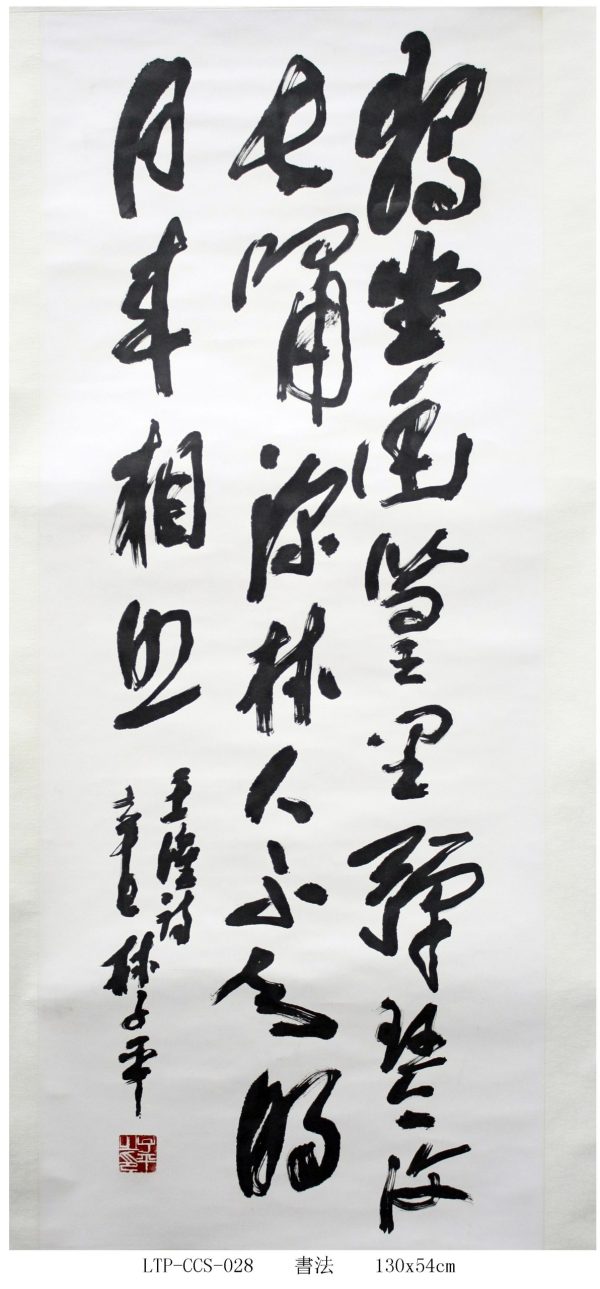 獨坐幽篁里彈琴復
長嘯深林人不知明
月來相照
王維詩
辛巳 林子平
LTP-CCS-028 書法 130x54cm